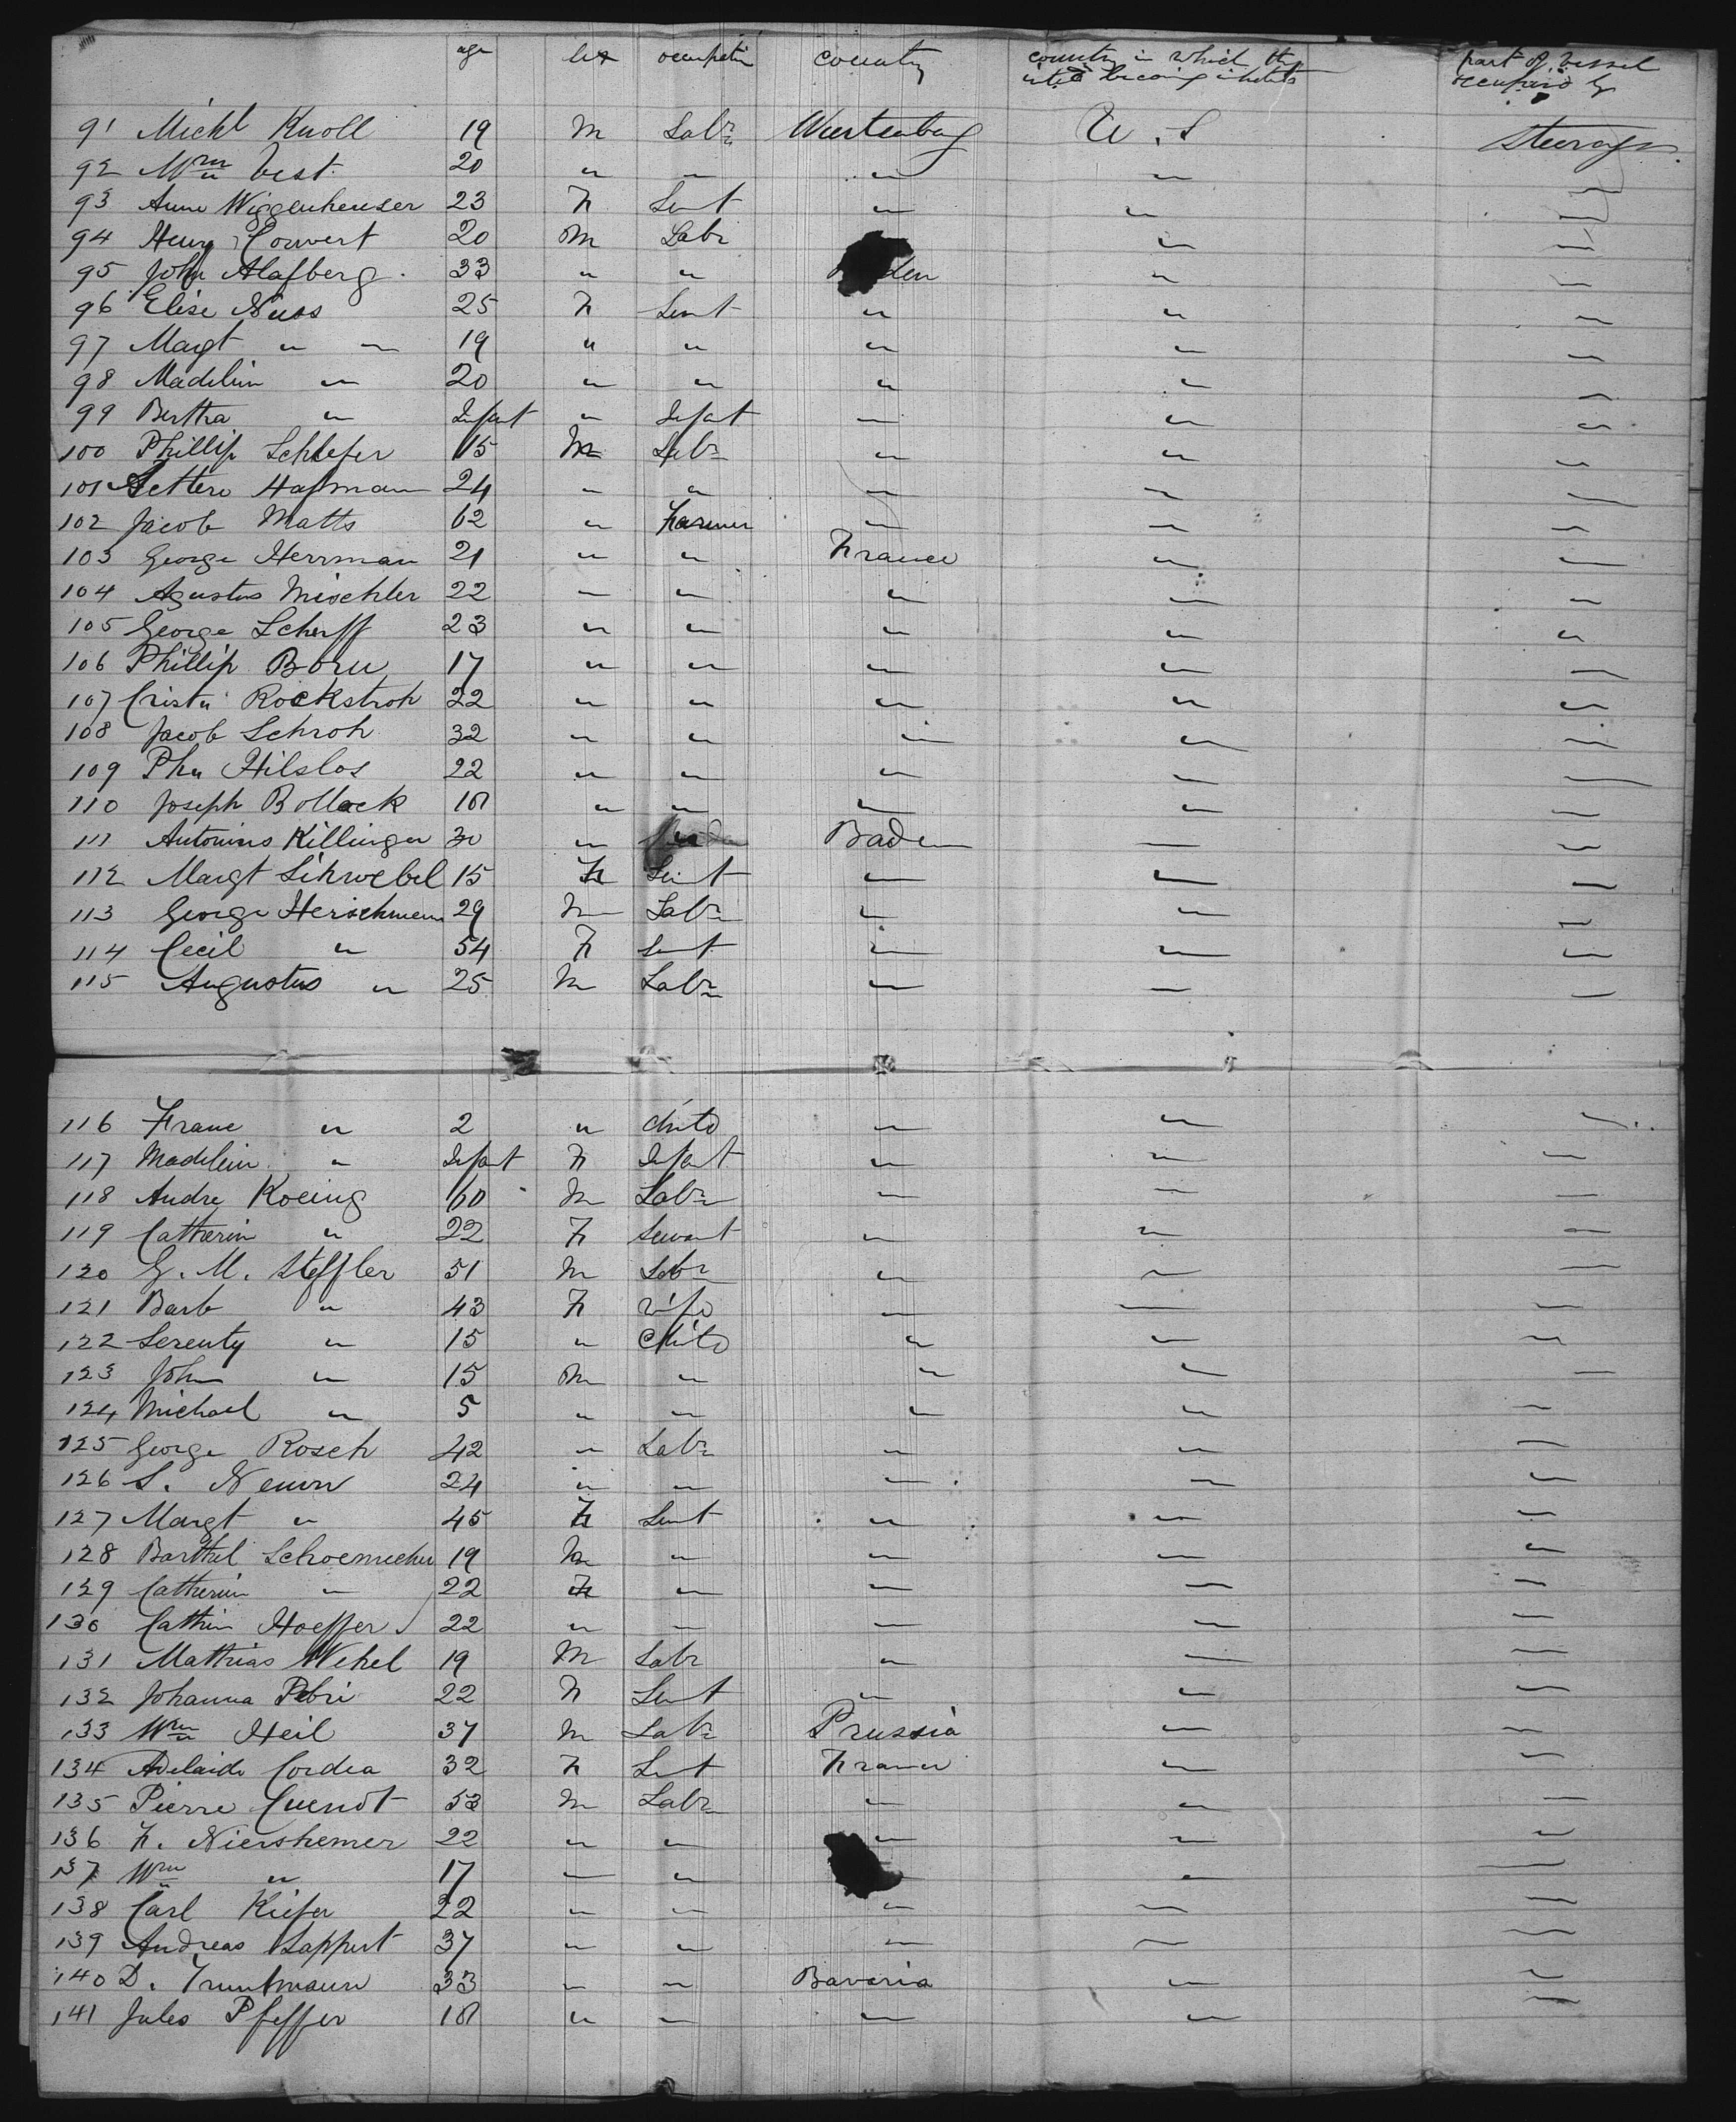 age sex occupation country country in which they intend becoming inhabitants part of vessel occupied by
91 Michl Knoll 19 M Labr Wurtenburg U.S Steerage
92 Wm Vest 20 " " " " "
93 Anna Wiggenheuser 23 F Sevt " " "
94 Henry Couvert 20 M Labr " "
95 John Alafberg 33 " " " "
96 Elise Nuss 25 F Sevt " " "
97 Magt " " 19 " " " " "
98 Madelein " 20 " " " " "
99 Bertha " Infant " Infant " " "
100 Phillip Schlefer 15 M Labr " " "
101 Hafman 24 " " " " "
102 Jacob Matts 62 " Farmer " " "
103 George Herrman 21 " " France " "
104 Agustus Mischler 22 " " " " "
105 George Scherff 23 " " " " "
106 Phillip Born 17 " " " " "
107 Cristn Rockstroh 22 " " " " "
108 Jacob Schroh 32 " " " " "
109 Phn Hilslos 22 " " " " "
110 Joseph Bollack 18 " " " " "
111 Antonius Killinger 30 " Baden " "
112 Margt Schwebel 15 F Sevt " " "
113 George Herschmenn 29 M Labr " " "
114 Cecil " 54 F Sevt " " "
115 Augustus " 25 M Labr " " "
116 Franc " 2 " Child " " "
117 Madelein " Infant F Infant " " "
118 Andre Koeing 60 M Labr " " "
119 Catherin " 22 F Servant " " "
120 G. M. Steffler 51 M Labr " " "
121 Barb " 43 F wife " " "
122 Serenty " 15 " Child " " "
123 John " 15 M " " " "
124 Michael " 5 " " " " "
125 George Rosch 42 " Labr " " "
126 S. Neuvn 24 " " " " "
127 Margt " 45 F Sevt " " "
128 Barthel Schoemecher 19 M " " " "
129 Catherin " 22 F " " " "
130 Cathrin Hoeffer 22 " " " " "
131 Mathias Wehel 19 M Labr " " "
132 Johanna Pebri 22 F Sevt " " "
133 Wm Heil 37 M Labr Prussia " "
134 Adelaide Cordea 32 F Sevt France " "
135 Pierre Cuenot 53 M Labr " " "
136 F. Niershemer 22 " " " " "
137 Wm " 17 " " " " "
138 Carl Kiefer 22 " " " " "
139 Andreas Lappert 37 " " " " "
140 D. Truntmann 33 " " Bavaria " "
141 Jules Pfeffer 18 " " " " "